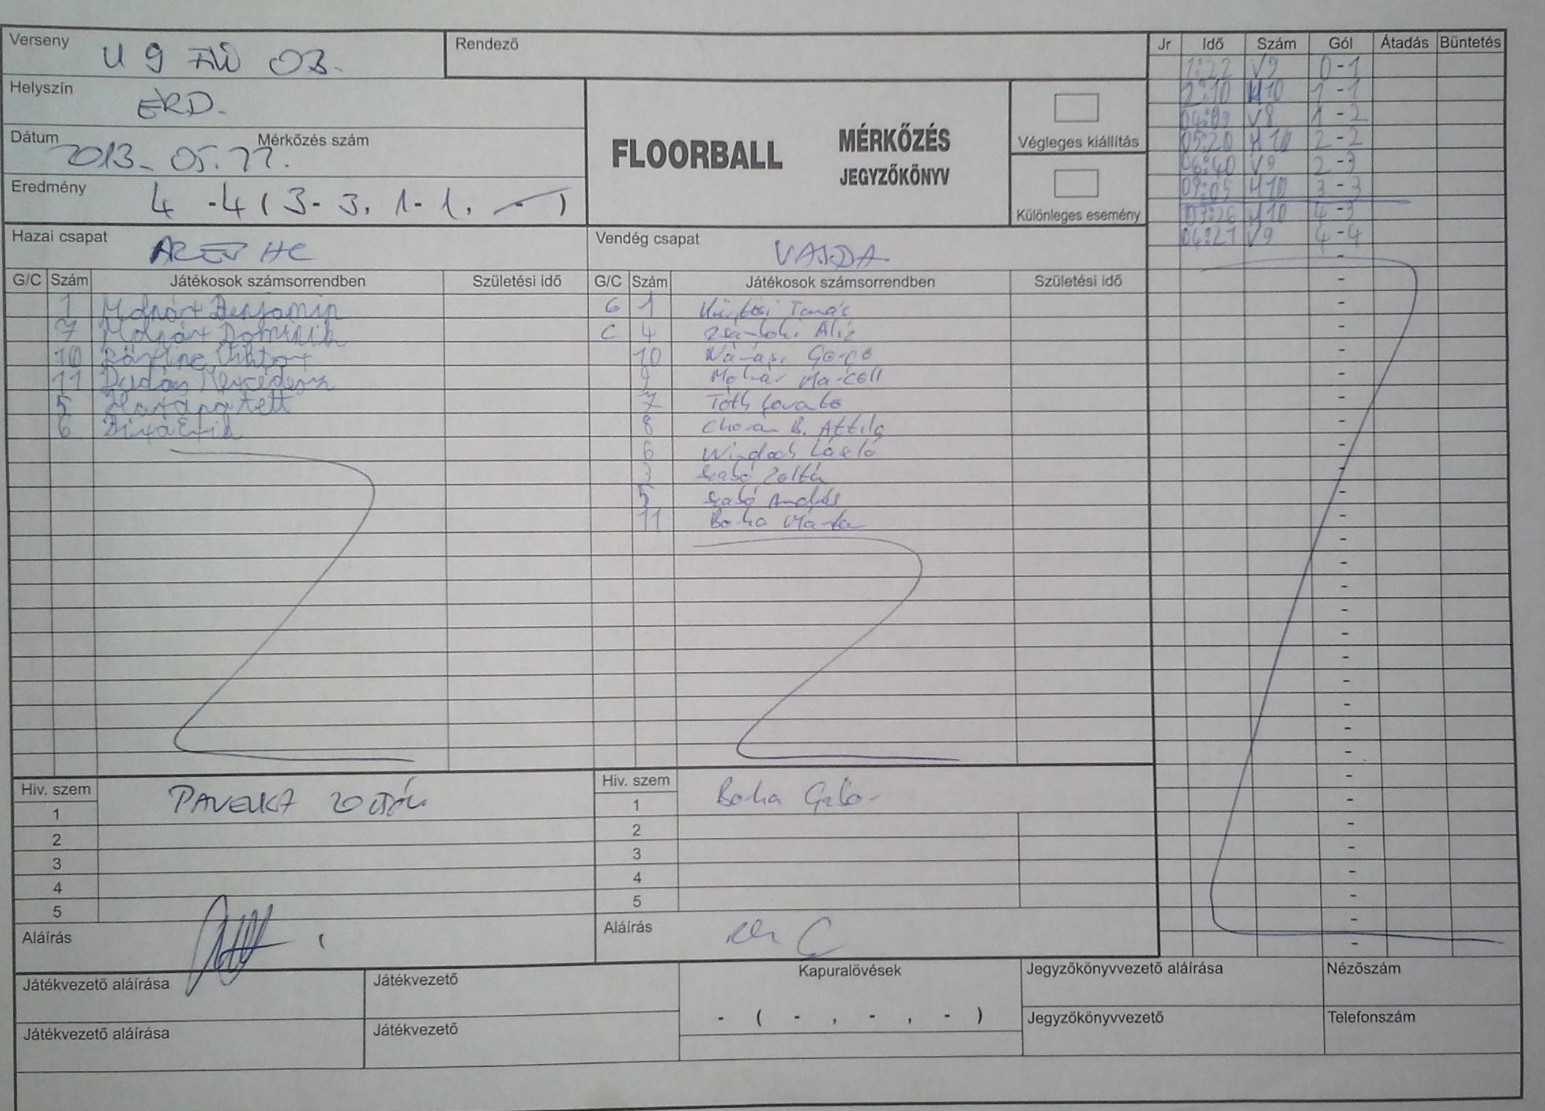 Verseny U 9 OB.
Rendező
Helyszín ÉRD.
Dátum 2013-05.11.
Mérkőzés szám
Eredmény 4-4 (3-3, 1-1, - )
FLOORBALL
MÉRKŐZÉS
JEGYZŐKÖNYV
Végleges kiállítás
Különleges esemény
Hazai csapat HC
Vendég csapat VAJDA
G/C Szám Játékosok számsorrendben Születési idő
1 Molnár Benjamin
7 Molnár Dominik
10 Viktor
11 Dudás Mercédesz
5
6
G/C Szám Játékosok számsorrendben Születési idő
G 1 Tamás
C 4 Zsámboki Aliz
10 Várási Gergő
9 Molnár Marcell
7 Tóth
8 B. Attila
6 László
3 Szabó Zoltán
5 Szabó András
11 Boha Márta
Jr Idő Szám Gól Átadás Büntetés
1:22 V9 0-1
2:10 H10 1-1
04:09 V8 1-2
05:20 H10 2-2
06:40 V9 2-3
09:05 H10 3-3
H10 4-3
04:21 V9 4-4
Hiv. szem
1 PAVELKA ZOLTÁN
2
3
4
5
Aláírás
Hiv. szem
1 Boha Gábor
2
3
4
5
Aláírás
Játékvezető aláírása
Játékvezető
Játékvezető aláírása
Játékvezető
Kapuralövések
- ( - , - , - )
Jegyzőkönyvvezető aláírása
Jegyzőkönyvvezető
Nézőszám
Telefonszám